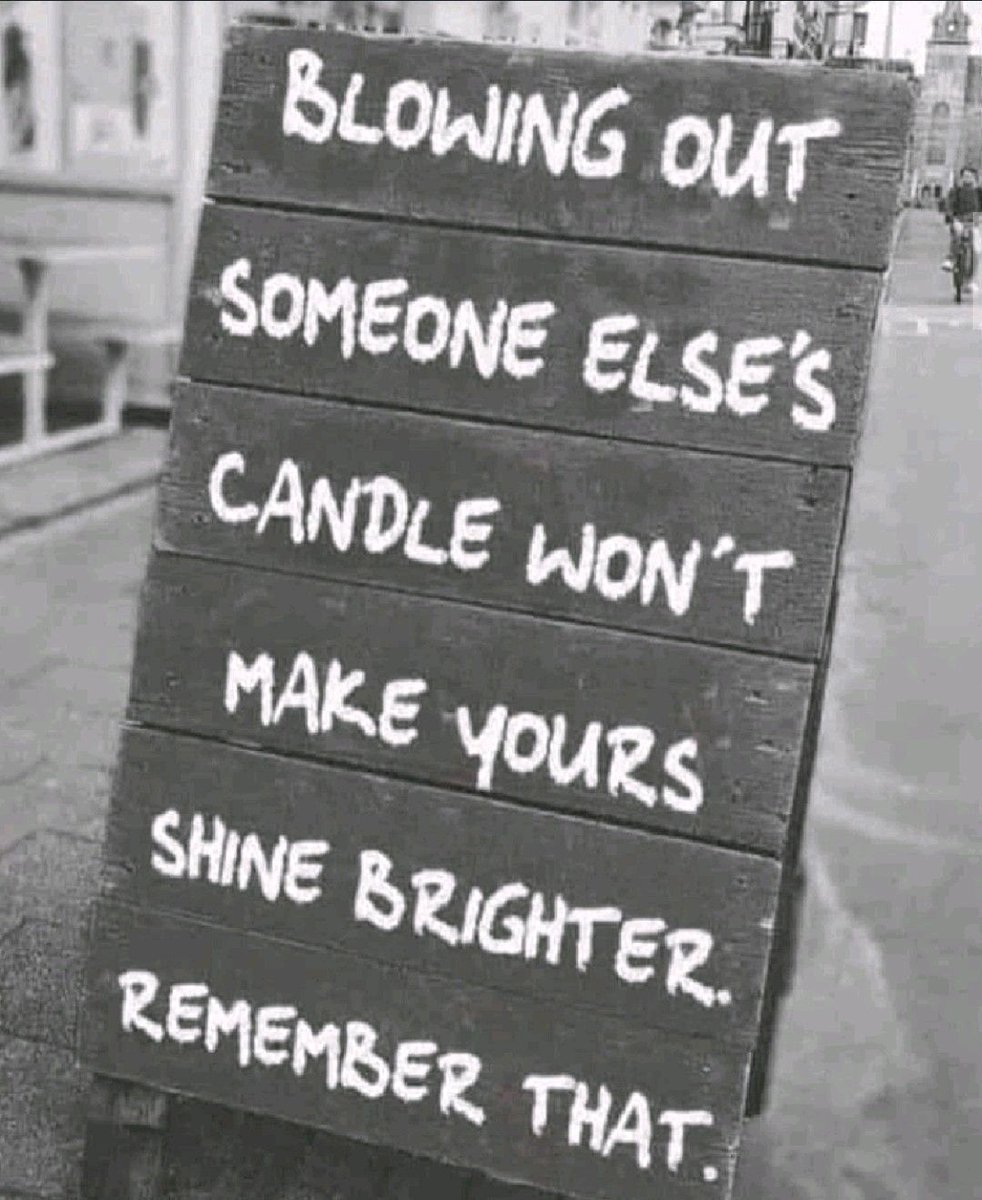 BLOWING OUT
SOMEONE ELSE'S
CANDLE WON'T
MAKE YOURS
SHINE BRIGHTER.
REMEMBER THAT.